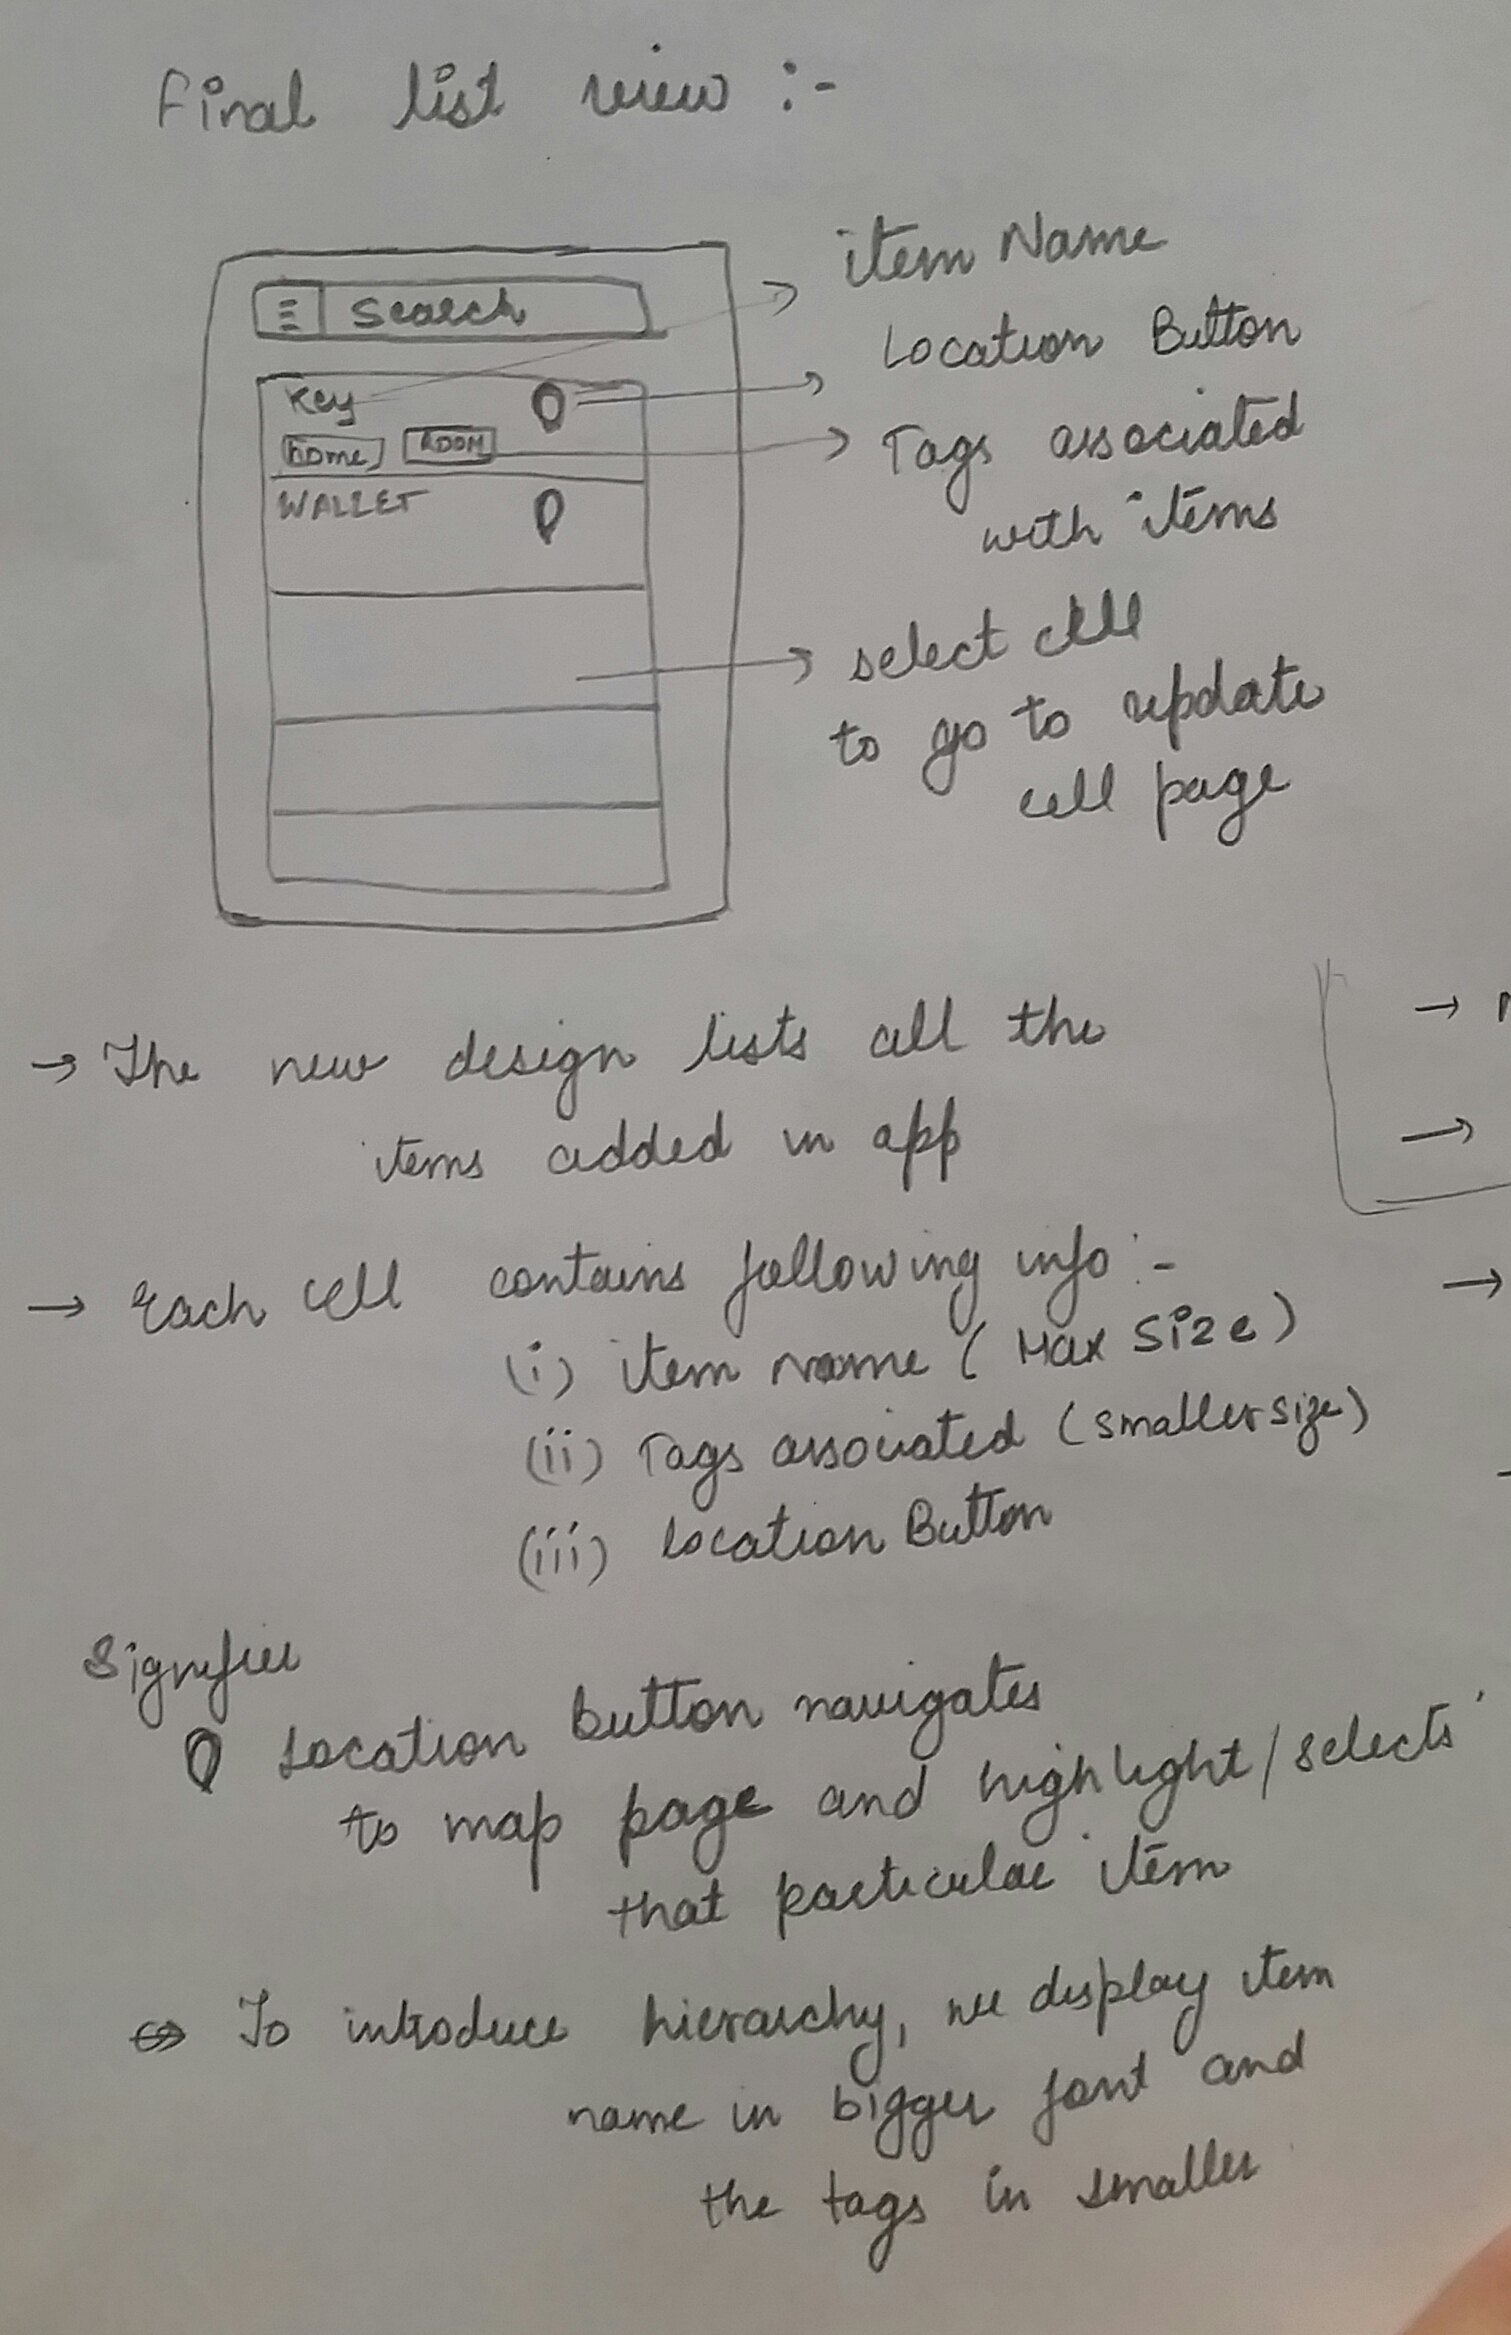 Final list view :-
Search
Key
home
ROOM
WALLET
item Name
Location Button
Tags associated
with items
select cell
to go to update
cell page
→ The new design lists all the
items added in app
→ Each cell contains following info :-
(i) item name (Max Size)
(ii) Tags associated (smaller size)
(iii) Location Button
Signifier
Location button navigates
to map page and highlight/selects
that particular item
⇔ To introduce hierarchy, we display item
name in bigger font and
the tags in smaller
→
→
→